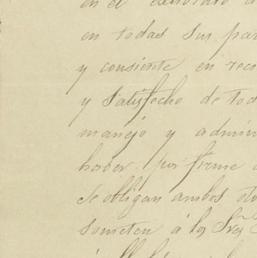 en el
en todas sus par
y consiente en reco
y satisfecho de tod
manejo y admin
haber por firme
Se obligan ambos oto
someten á los Srẽs